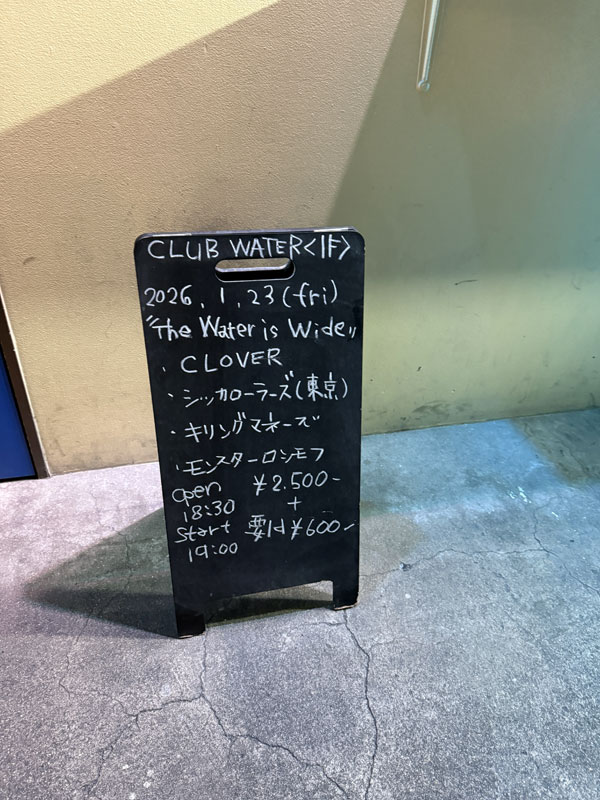 CLUB WATER<1F>
2026.1.23(fri)
"The Water is Wide"
・CLOVER
・シッカローラーズ(東京)
・キリングマネーズ
・モンスターロシモフ
open ¥2.500-
18:30 +
start 要1d ¥600-
19:00